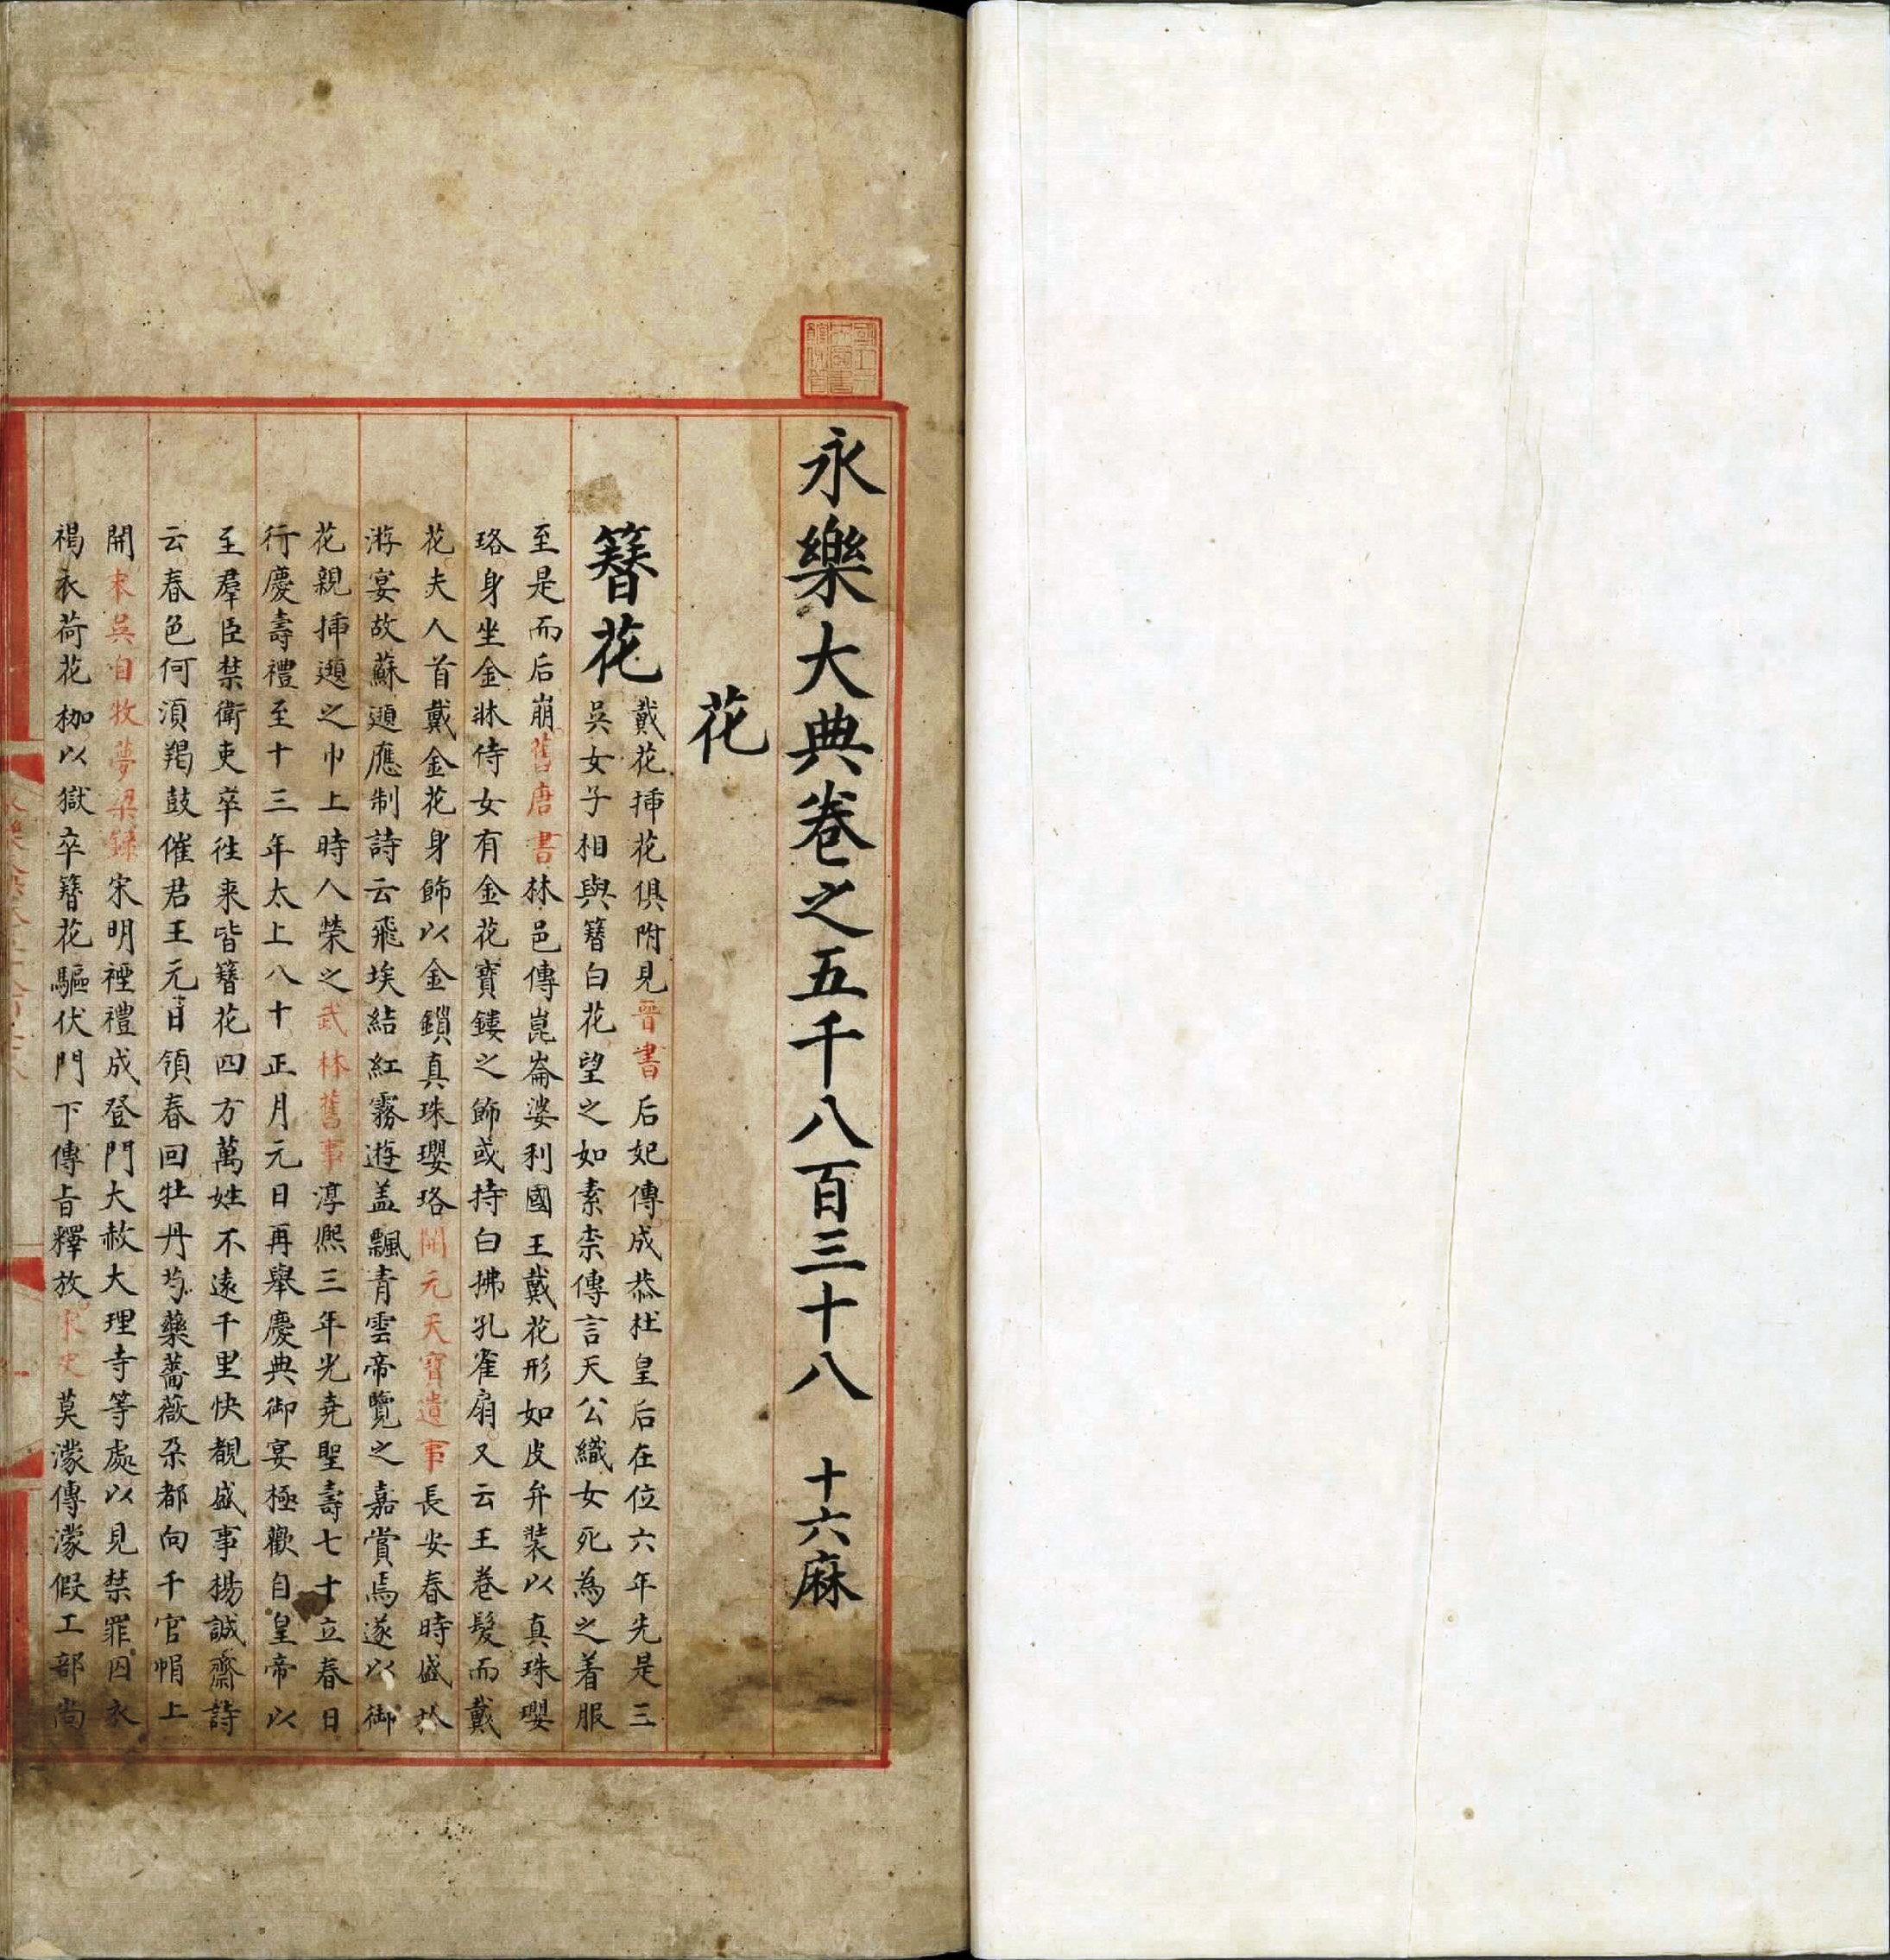 永樂大典卷之五千八百三十八 十六麻
花
簪花
戴花揷花俱附見晉書后妃傳成恭杜皇后在位六年先是三
吳女子相與簪白花望之如素柰傳言天公織女死為之着服
至是而后崩舊唐書林邑傳崑崙婆利國王戴花形如皮弁裝以真珠瓔
珞身坐金牀侍女有金花寶鏤之飾或持白拂孔雀扇又云王卷髮而戴
花夫人首戴金花身飾以金鎖真珠瓔珞開元天寶遺事長安春時盛於
游宴故蘇頲應制詩云飛埃結紅霧遊盖飄青雲帝覽之嘉賞焉遂以御
花親揷頲之巾上時人榮之武林舊事淳熙三年光堯聖壽七十立春日
行慶壽禮至十三年太上八十正月元日再舉慶典御宴極歡自皇帝以
至羣臣禁衛吏卒往來皆簪花四方萬姓不遠千里快覩盛事楊誠齋詩
云春色何湏羯鼓催君王元日領春回牡丹芍藥薔薇朶都向千官帽上
開宋吳自牧夢梁錄宋明禋禮成登門大赦大理寺等處以見禁罪囚衣
褐衣荷花枷以獄卒簪花驅伏門下傳旨釋放宋史莫濛傳濛假工部尚